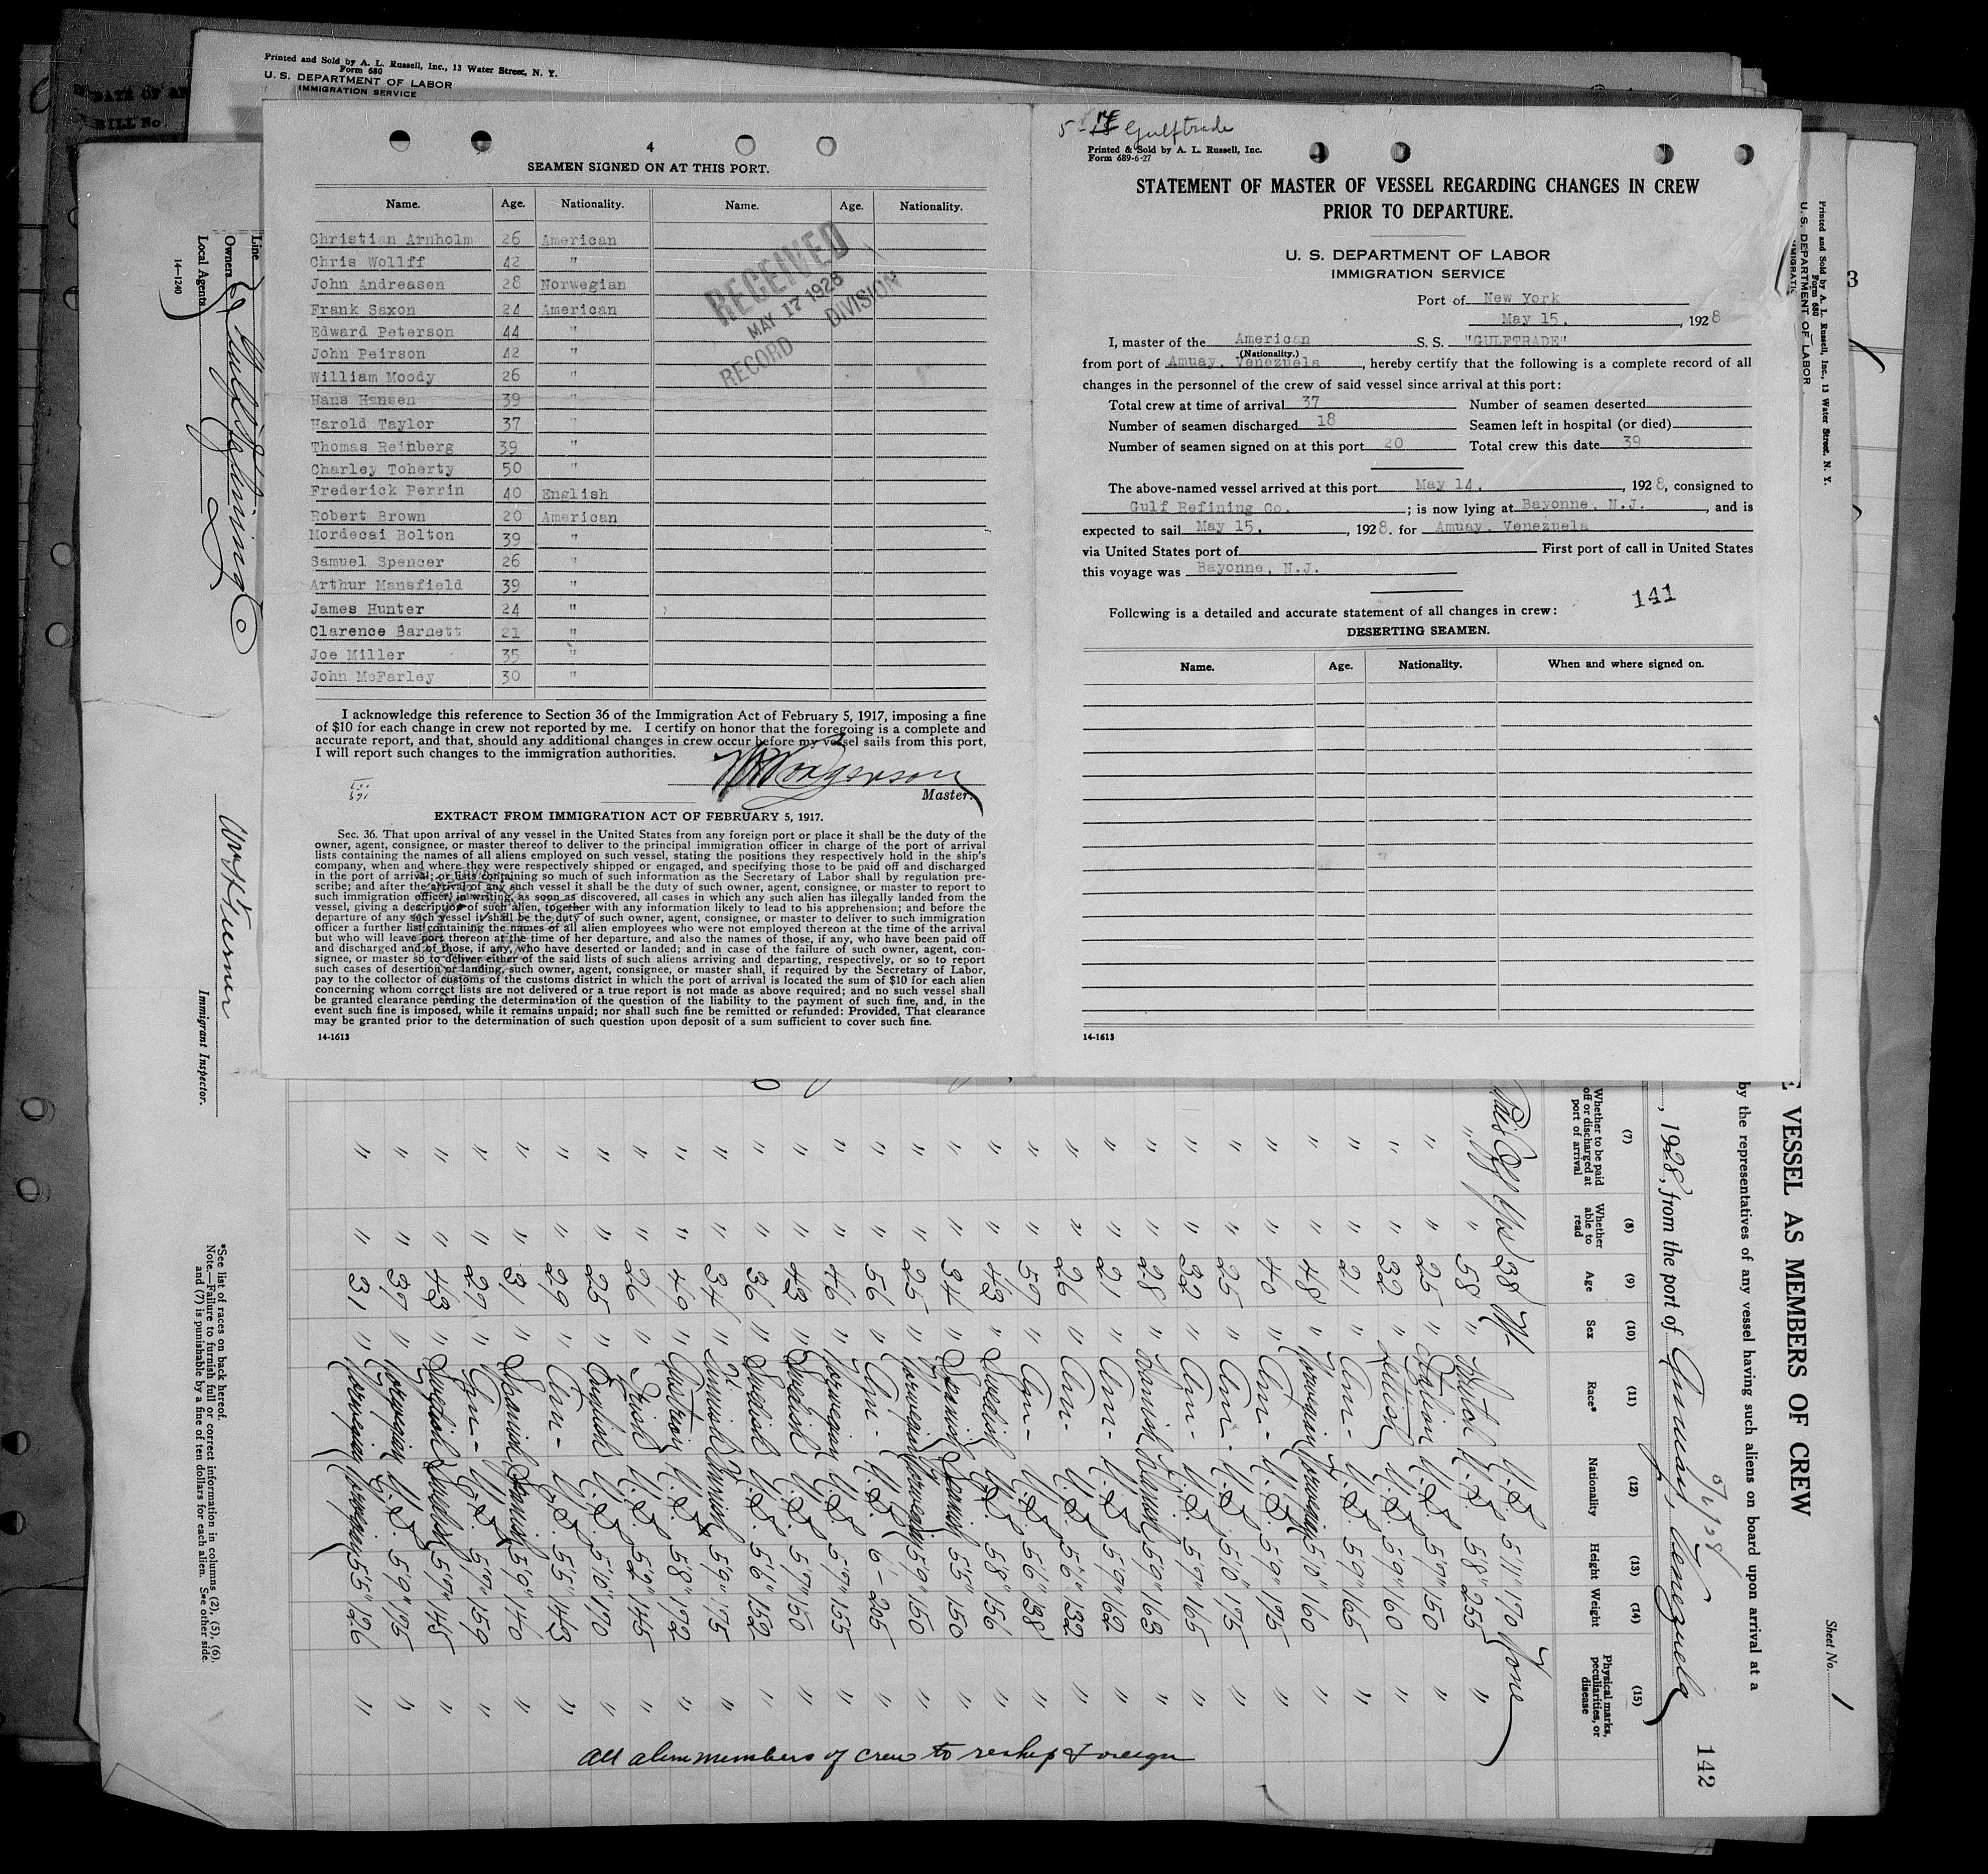 Printed and Sold by A. L. Russell, Inc., 13 Water Street, N. Y.
Form 680
U. S. DEPARTMENT OF LABOR
IMMIGRATION SERVICE
BILL No.
4
SEAMEN SIGNED ON AT THIS PORT.
Name. Age. Nationality. Name. Age. Nationality.
Christian Arnholm 26 American
Chris Wollff 42 "
John Andreasen 28 Norwegian
Frank Saxon 24 American
Edward Peterson 44 "
John Peirson 42 "
William Moody 26 "
Hans Hansen 39 "
Harold Taylor 37 "
Thomas Reinberg 39 "
Charley Toherty 50 "
Frederick Perrin 40 English
Robert Brown 20 American
Mordecai Bolton 39 "
Samuel Spencer 26 "
Arthur Mansfield 39 "
James Hunter 24 "
Clarence Barnett 21 "
Joe Miller 35 "
John McFarley 30 "
RECEIVED
MAY 17 1928
RECORD DIVISION
I acknowledge this reference to Section 36 of the Immigration Act of February 5, 1917, imposing a fine
of $10 for each change in crew not reported by me. I certify on honor that the foregoing is a complete and
accurate report, and that, should any additional changes in crew occur before my vessel sails from this port,
I will report such changes to the immigration authorities.
Master.
EXTRACT FROM IMMIGRATION ACT OF FEBRUARY 5, 1917.
Sec. 36. That upon arrival of any vessel in the United States from any foreign port or place it shall be the duty of the
owner, agent, consignee, or master thereof to deliver to the principal immigration officer in charge of the port of arrival
lists containing the names of all aliens employed on such vessel, stating the positions they respectively hold in the ship's
company, when and where they were respectively shipped or engaged, and specifying those to be paid off and discharged
in the port of arrival; or lists containing so much of such information as the Secretary of Labor shall by regulation pre-
scribe; and after the arrival of any such vessel it shall be the duty of such owner, agent, consignee, or master to report to
such immigration officer, in writing, as soon as discovered, all cases in which any such alien has illegally landed from the
vessel, giving a description of such alien, together with any information likely to lead to his apprehension; and before the
departure of any such vessel it shall be the duty of such owner, agent, consignee, or master to deliver to such immigration
officer a further list containing the names of all alien employees who were not employed thereon at the time of the arrival
but who will leave port thereon at the time of her departure, and also the names of those, if any, who have been paid off
and discharged and of those, if any, who have deserted or landed; and in case of the failure of such owner, agent, con-
signee, or master so to deliver either of the said lists of such aliens arriving and departing, respectively, or so to report
such cases of desertion or landing, such owner, agent, consignee, or master shall, if required by the Secretary of Labor,
pay to the collector of customs of the customs district in which the port of arrival is located the sum of $10 for each alien
concerning whom correct lists are not delivered or a true report is not made as above required; and no such vessel shall
be granted clearance pending the determination of the question of the liability to the payment of such fine, and, in the
event such fine is imposed, while it remains unpaid; nor shall such fine be remitted or refunded: Provided, That clearance
may be granted prior to the determination of such question upon deposit of a sum sufficient to cover such fine.
14-1613
Gulftrade
Printed & Sold by A. L. Russell, Inc.
Form 689-6-27
STATEMENT OF MASTER OF VESSEL REGARDING CHANGES IN CREW
PRIOR TO DEPARTURE.
U. S. DEPARTMENT OF LABOR
IMMIGRATION SERVICE
Port of New York
May 15, , 1928
I, master of the American S. S. "GULFTRADE"
(Nationality.)
from port of Amuay, Venezuela , hereby certify that the following is a complete record of all
changes in the personnel of the crew of said vessel since arrival at this port:
Total crew at time of arrival 37 Number of seamen deserted
Number of seamen discharged 18 Seamen left in hospital (or died)
Number of seamen signed on at this port 20 Total crew this date 39
The above-named vessel arrived at this port May 14, , 1928, consigned to
Gulf Refining Co. ; is now lying at Bayonne, N.J. , and is
expected to sail May 15, , 1928. for Amuay, Venezuela
via United States port of First port of call in United States
this voyage was Bayonne, N.J.
141
Following is a detailed and accurate statement of all changes in crew:
DESERTING SEAMEN.
Name. Age. Nationality. When and where signed on.
14-1613
Printed and Sold by A. L. Russell, Inc., 13 Water Street, N. Y.
Form 680
U. S. DEPARTMENT OF LABOR
Sheet No. 1
142
VESSEL AS MEMBERS OF CREW
by the representatives of any vessel having such aliens on board upon arrival at a
, 1928, from the port of Amuay, Venezuela
(7) (8) (9) (10) (11) (12) (13) (14) (15)
Whether to be paid off or discharged at port of arrival
Whether able to read
Age
Sex
Race*
Nationality
Height
Weight
Physical marks, peculiarities, or disease
Yes 38 M U.S. 5'11" 170 None
" " 58 " Dutch U.S. 5'8" 255 "
" " 25 " Italian U.S. 5'7" 150 "
" " 32 " Lettish U.S. 5'9" 160 "
" " 21 " Am- U.S. 5'9" 165 "
" " 48 " Norwegian Norwegian 5'10" 160 "
" " 40 " Am- U.S. 5'9" 175 "
" " 25 " Am- U.S. 5'10" 175 "
" " 32 " Am- U.S. 5'7" 165 "
" " 28 " Danish Danish 5'9" 163 "
" " 21 " Am- U.S. 5'9" 162 "
" " 26 " Am- U.S. 5'6" 132 "
" " 57 " Am- U.S. 5'6" 138 "
" " 43 " Swedish U.S. 5'8" 156 "
" " 34 " Spanish Spanish 5'5" 150 "
" " 25 " Norwegian Norwegian 5'9" 150 "
" " 56 " Am- U.S. 6'- 205 "
" " 46 " Norwegian U.S. 5'7" 155 "
" " 43 " Swedish U.S. 5'7" 150 "
" " 36 " Swedish U.S. 5'6" 152 "
" " 34 " Finnish Finnish 5'9" 175 "
" " 49 " Austrian U.S. 5'8" 172 "
" " 26 " Irish U.S. 5'2" 145 "
" " 25 " English U.S. 5'10" 170 "
" " 29 " Am- U.S. 5'5" 143 "
" " 31 " Spanish Spanish 5'9" 140 "
" " 27 " Am- U.S. 5'7" 159 "
" " 43 " English English 5'7" 145 "
" " 37 " Norwegian U.S. 5'9" 175 "
" " 31 " Norwegian Norwegian 5'5" 126 "
All alien members of crew to reship foreign
Line
Owners
Local Agents
Gulf Refining Co
14-1240
Immigrant Inspector.
*See list of races on back hereof.
Note.—Failure to furnish full or correct information in columns (2), (5), (6),
and (7) is punishable by a fine of ten dollars for each alien. See other side.